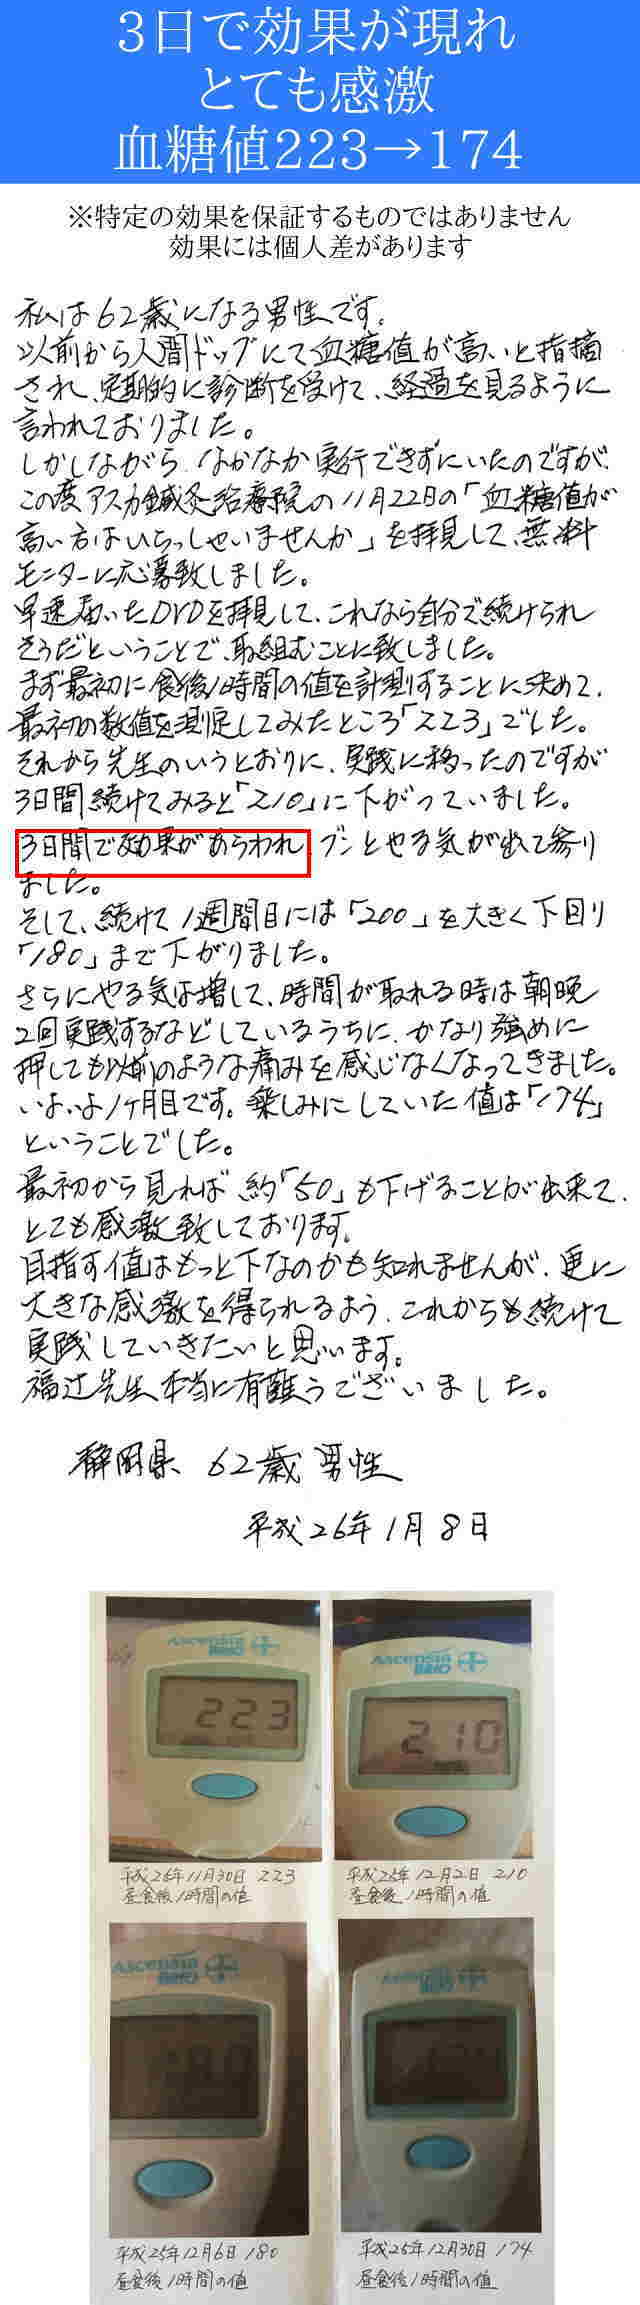 3日で効果が現れ
とても感激
血糖値223→174
※特定の効果を保証するものではありません
効果には個人差があります
私は62歳になる男性です。
以前から人間ドッグにて血糖値が高いと指摘
され、定期的に診断を受けて、経過を見るように
言われておりました。
しかしながら、なかなか実行できずにいたのですが、
この度アスカ鍼灸治療院の11月22日の「血糖値が
高い方はいらっしゃいませんか」を拝見して、無料
モニターに応募致しました。
早速届いたDVDを拝見して、これなら自分で続けられ
そうだということで、取組むことに致しました。
まず最初に食後1時間の値を計測することに決めて、
最初の数値を測定してみたところ「223」でした。
それから先生のいうとおりに、実践に移ったのですが
3日間続けてみると「210」に下がっていました。
3日間で効果があらわれ、グンとやる気が出て参り
ました。
そして、続けて1週間目には「200」を大きく下回り
「180」まで下がりました。
さらにやる気は増して、時間が取れる時は朝晩
2回実践するなどしているうちに、かなり強めに
押しても以前のような痛みを感じなくなってきました。
いよいよ1ヶ月目です。楽しみにしていた値は「174」
ということでした。
最初から見れば約「50」も下げることが出来て、
とても感激致しております。
目指す値はもっと下なのかも知れませんが、更に
大きな感激を得られるよう、これからも続けて
実践していきたいと思います。
福辻先生、本当に有難うございました。
静岡県 62歳 男性
平成26年1月8日
Ascensia
BRIO
223
Ascensia
BRIO
210
平成25年11月30日 223
昼食後1時間の値
平成25年12月2日 210
昼食後1時間の値
Ascensia
BRIO
180
Ascensia
BRIO
平成25年12月6日 180
昼食後1時間の値
平成25年12月30日 174
昼食後1時間の値